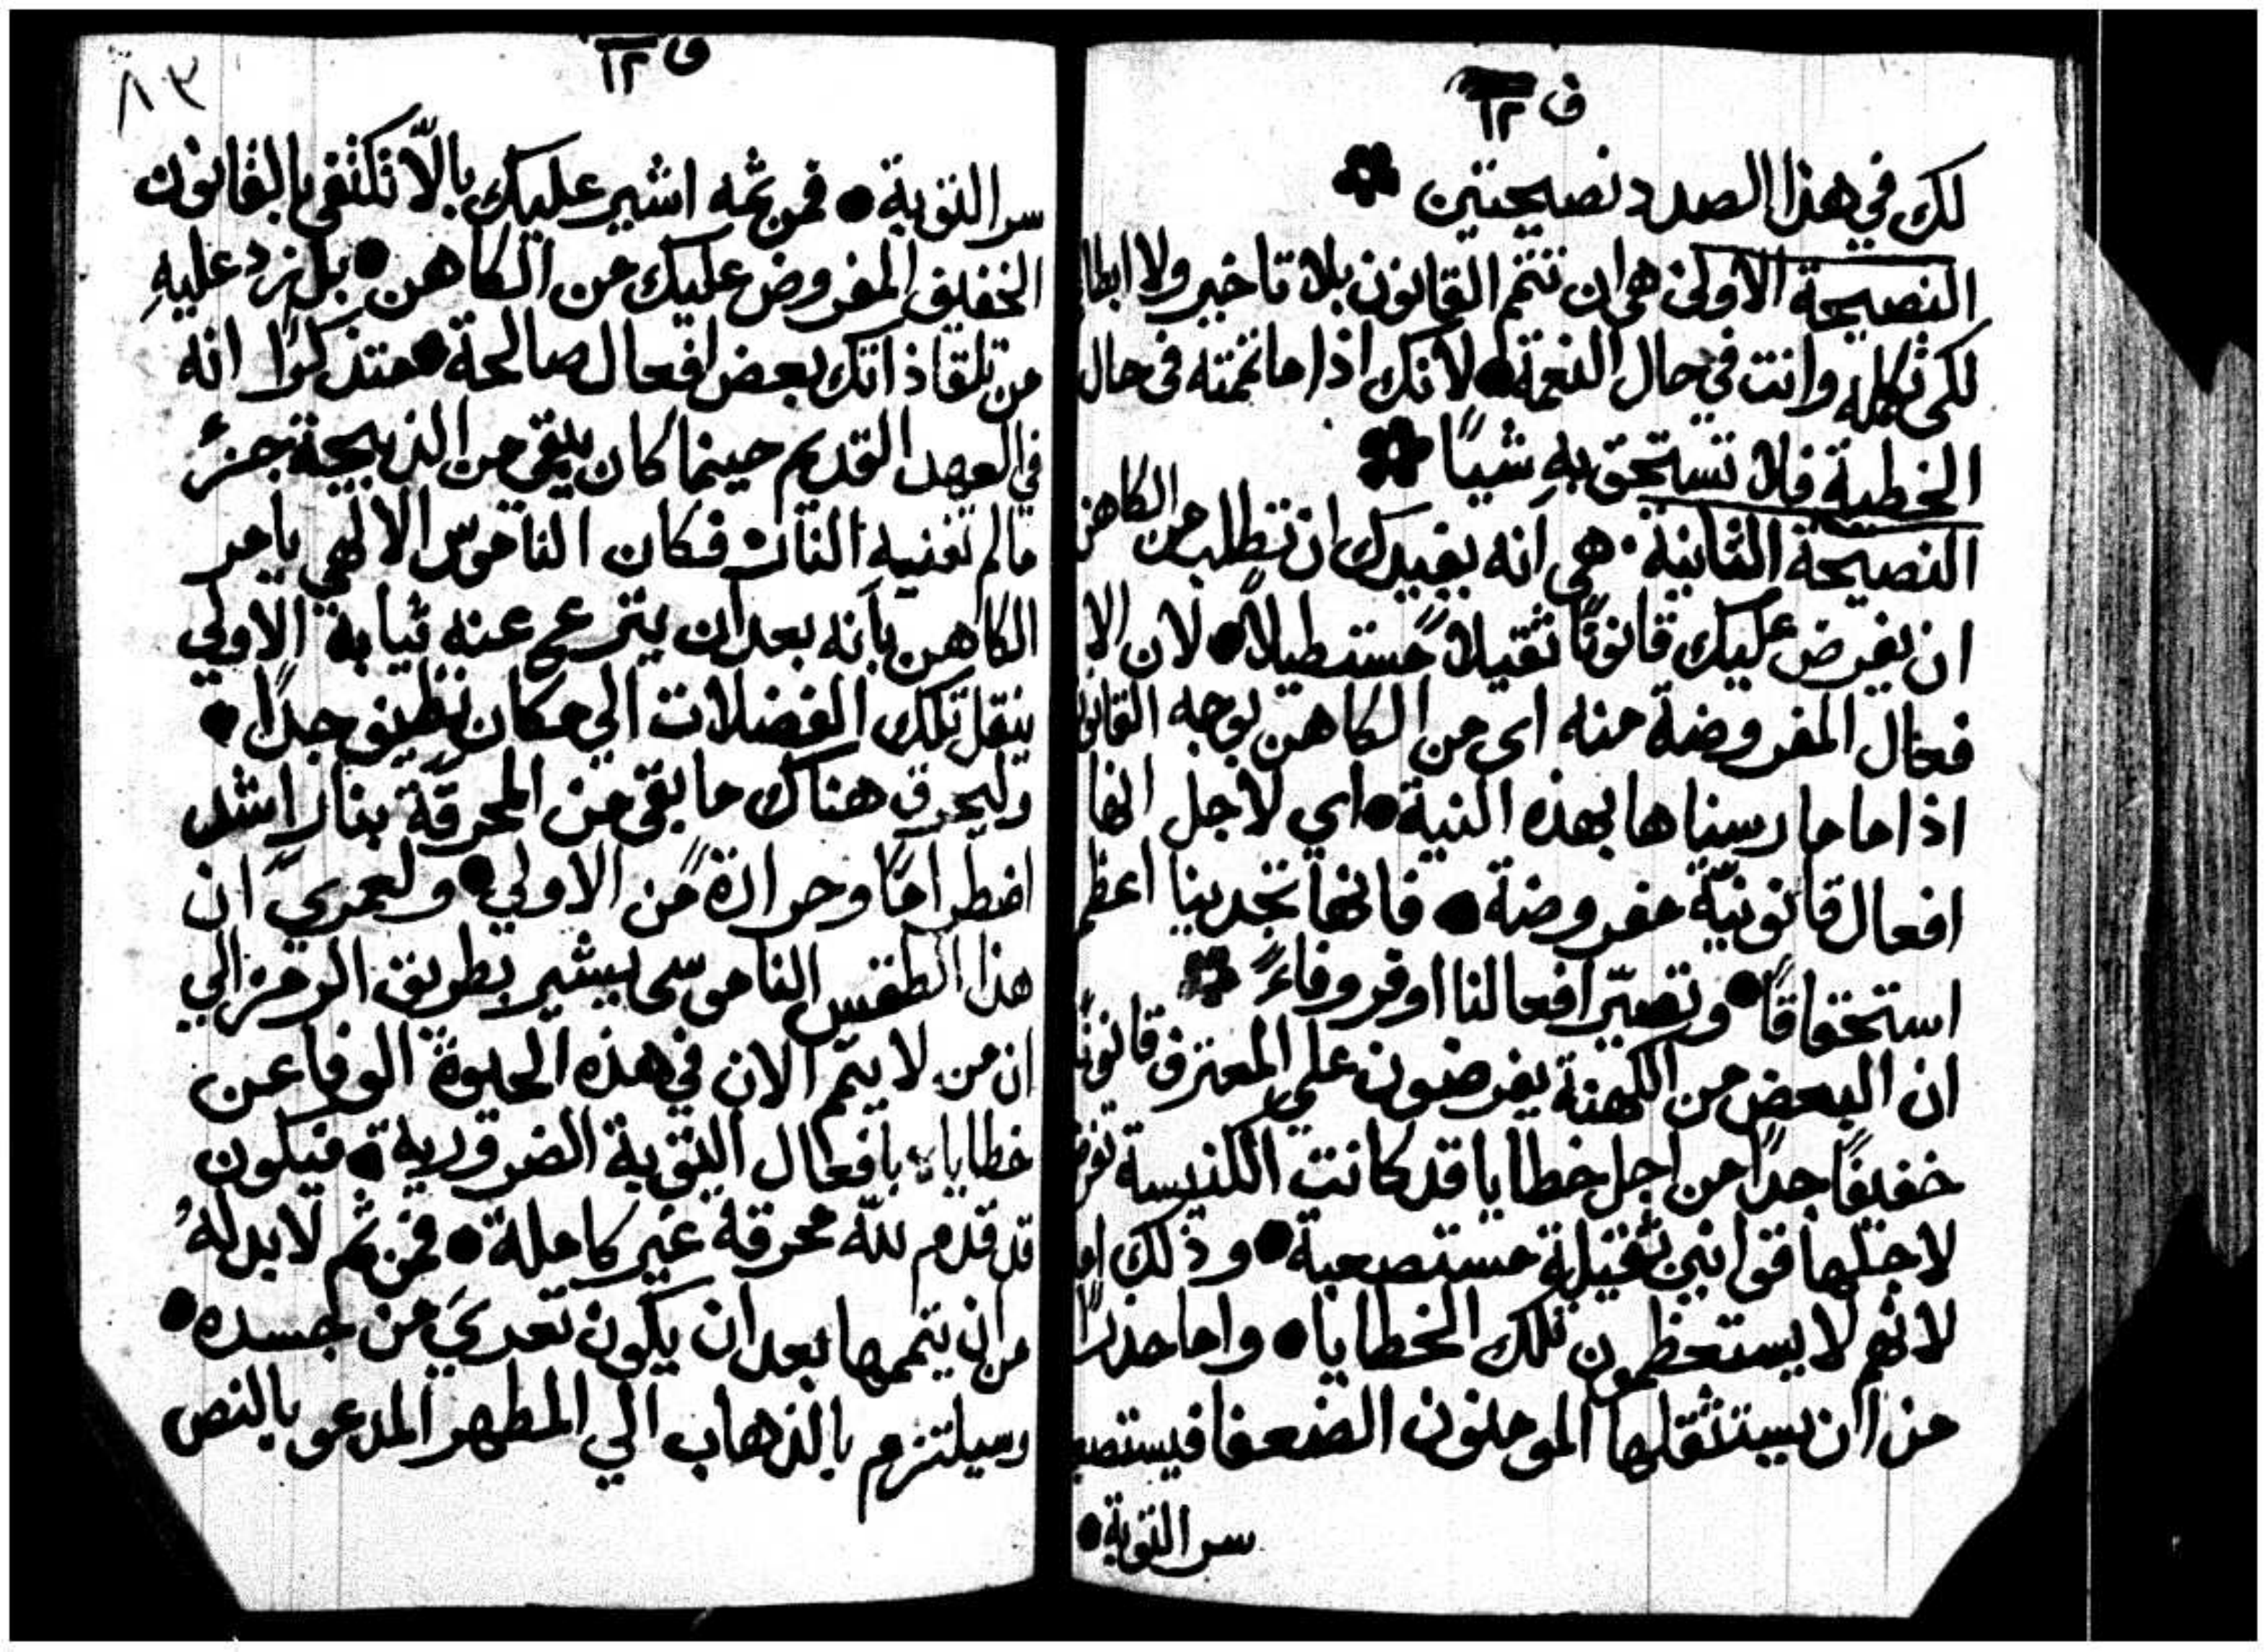 ف ١٢
لك في هذا الصدد نصيحتين
النصيحة الاولى هي ان تتم القانون بلا تاخير ولا ابطا
لكي تكمله وانت في حال النعمة • لانك اذا ما تممته في حال
الخطية فلا تستحق بهِ شيًا
النصيحة الثانية • هي انه يفيدك ان تطلب من الكاهن
ان يفرض عليك قانونًا ثقيلاً مستطيلاً • لان الا
فعال المفروضة منه اى من الكاهن بوجه القانون
اذا ما مارسناها بهذه النية • اي لاجل انها
افعال قانونيّة مفروضة • فانها تجدينا اعظم
استحقاقًا • وتصيّر افعالنا اوفر وفاءً
ان البعض من الكهنة يفرضون علي المعترف قانونًا
خفيفًا جدًا من اجل خطايا قد كانت الكنيسة تفرض
لاجلها قوانين ثقيلة مستصعبة • وذلك اما
لانهم لا يستعظمون تلك الخطايا • واما حذرًا
من ان يستثقلها المومنون الضعفا فيستصعب
سر التوبة •
ق ١٢
٨٣
سر التوبة • فمن ثمه اشير عليك بالاّ تكتفي بالقانون
الخفيف المفروض عليك من الكاهن • بل زد عليهِ
من تلقا ذاتك بعض افعال صالحة • متذكرًا انه
في العهد القديم حينما كان يبقي من الذبيحة جزءٌ
مالم تفنيه النار فكان الناموس الالهي يامر
الكاهن بانه بعد ان ينزع عنه ثيابة الاولي
ينقل تلك الفضلات الي مكان نظيف جدًا •
وليحرق هناك ما بقي من المحرقة بنار اشد
اضطرامًا وحرارةً من الاولي • ولعمري ان
هذا الطقس الناموسى يشير بطريق الرمز الي
ان من لا يتم الان في هذه الحيوة الوفا عن
خطاياه بافعال التوبة الضرورية • فيكون
قد قدم لله محرقة غير كاملة • فمن ثم لا بد لهُ
من ان يتممها بعد ان يكون تعديَ من جسده •
وسيلتزم بالذهاب الي المطهر المدعو بالنص